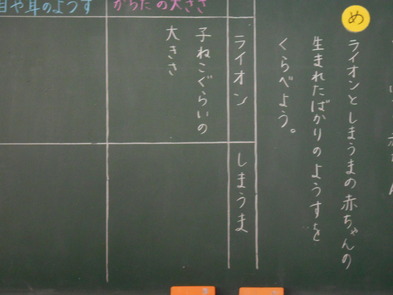 め
ライオンとしまうまの赤ちゃんの
生まれたばかりのようすを
くらべよう。
ライオン
しまうま
からだの大きさ
子ねこぐらいの
大きさ
目や耳のようす